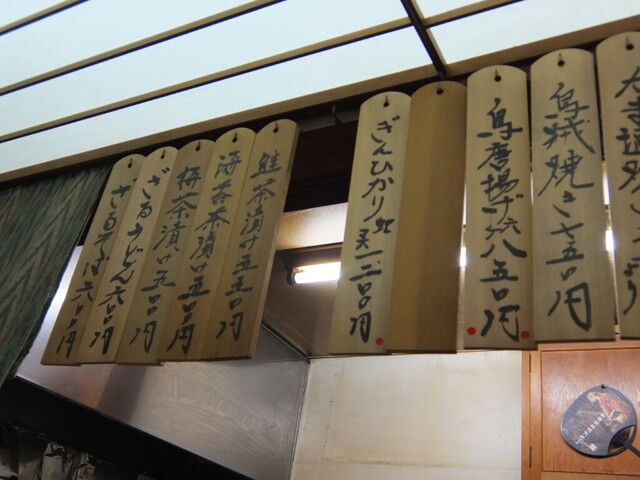 鳥賊焼き七五〇円
鳥唐揚げ六ヶ八五〇円
ぎんひかり
一二〇〇円
鮭茶漬け五五〇円
海苔茶漬け五〇〇円
梅茶漬け五〇〇円
ざるうどん六〇〇円
ざるそば六〇〇円